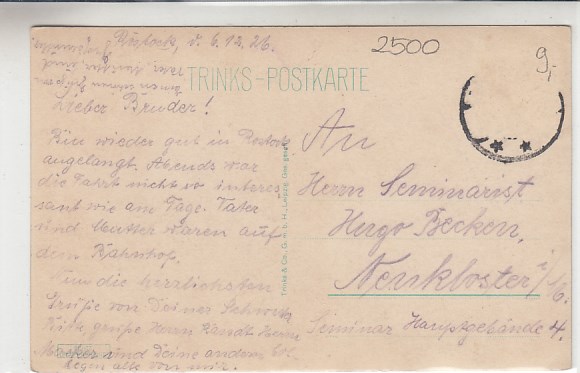 Rostock, d. 6.12.26.
2500
9,-
TRINKS-POSTKARTE
Lieber Bruder!
Bin wieder gut in Rostock
angelangt. Abends war
die Fahrt nicht so interes
sant wie am Tage. Vater
und Mutter waren auf
dem Bahnhof.
Nun die herzlichsten
Grüße von Deiner Schwester
grüße Herrn
und Deine andern
alle von mir.
Trinks & Co., G. m. b. H., Leipzig. Ges. gesch.
An
Herrn Seminarist
Hugo Becken,
Neukloster i/M.
Seminar Hauptgebäude 4.